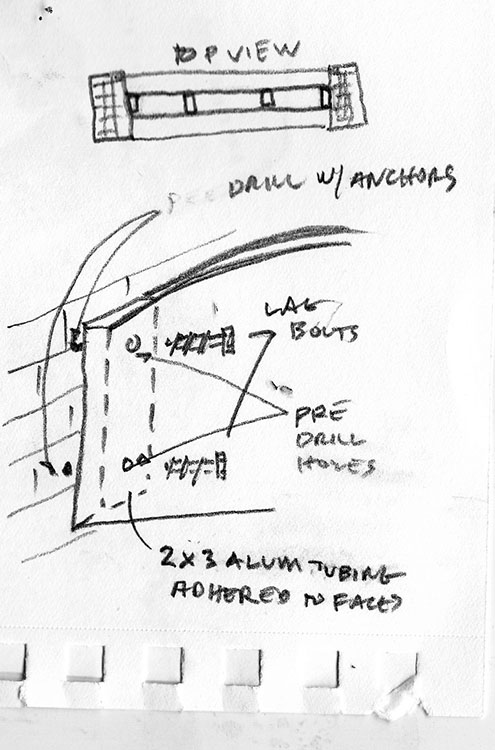 TOP VIEW
DRILL W/ ANCHORS
LAG
BOLTS
PRE
DRILL
HOLES
2X3 ALUM TUBING
ADHERED TO FACES